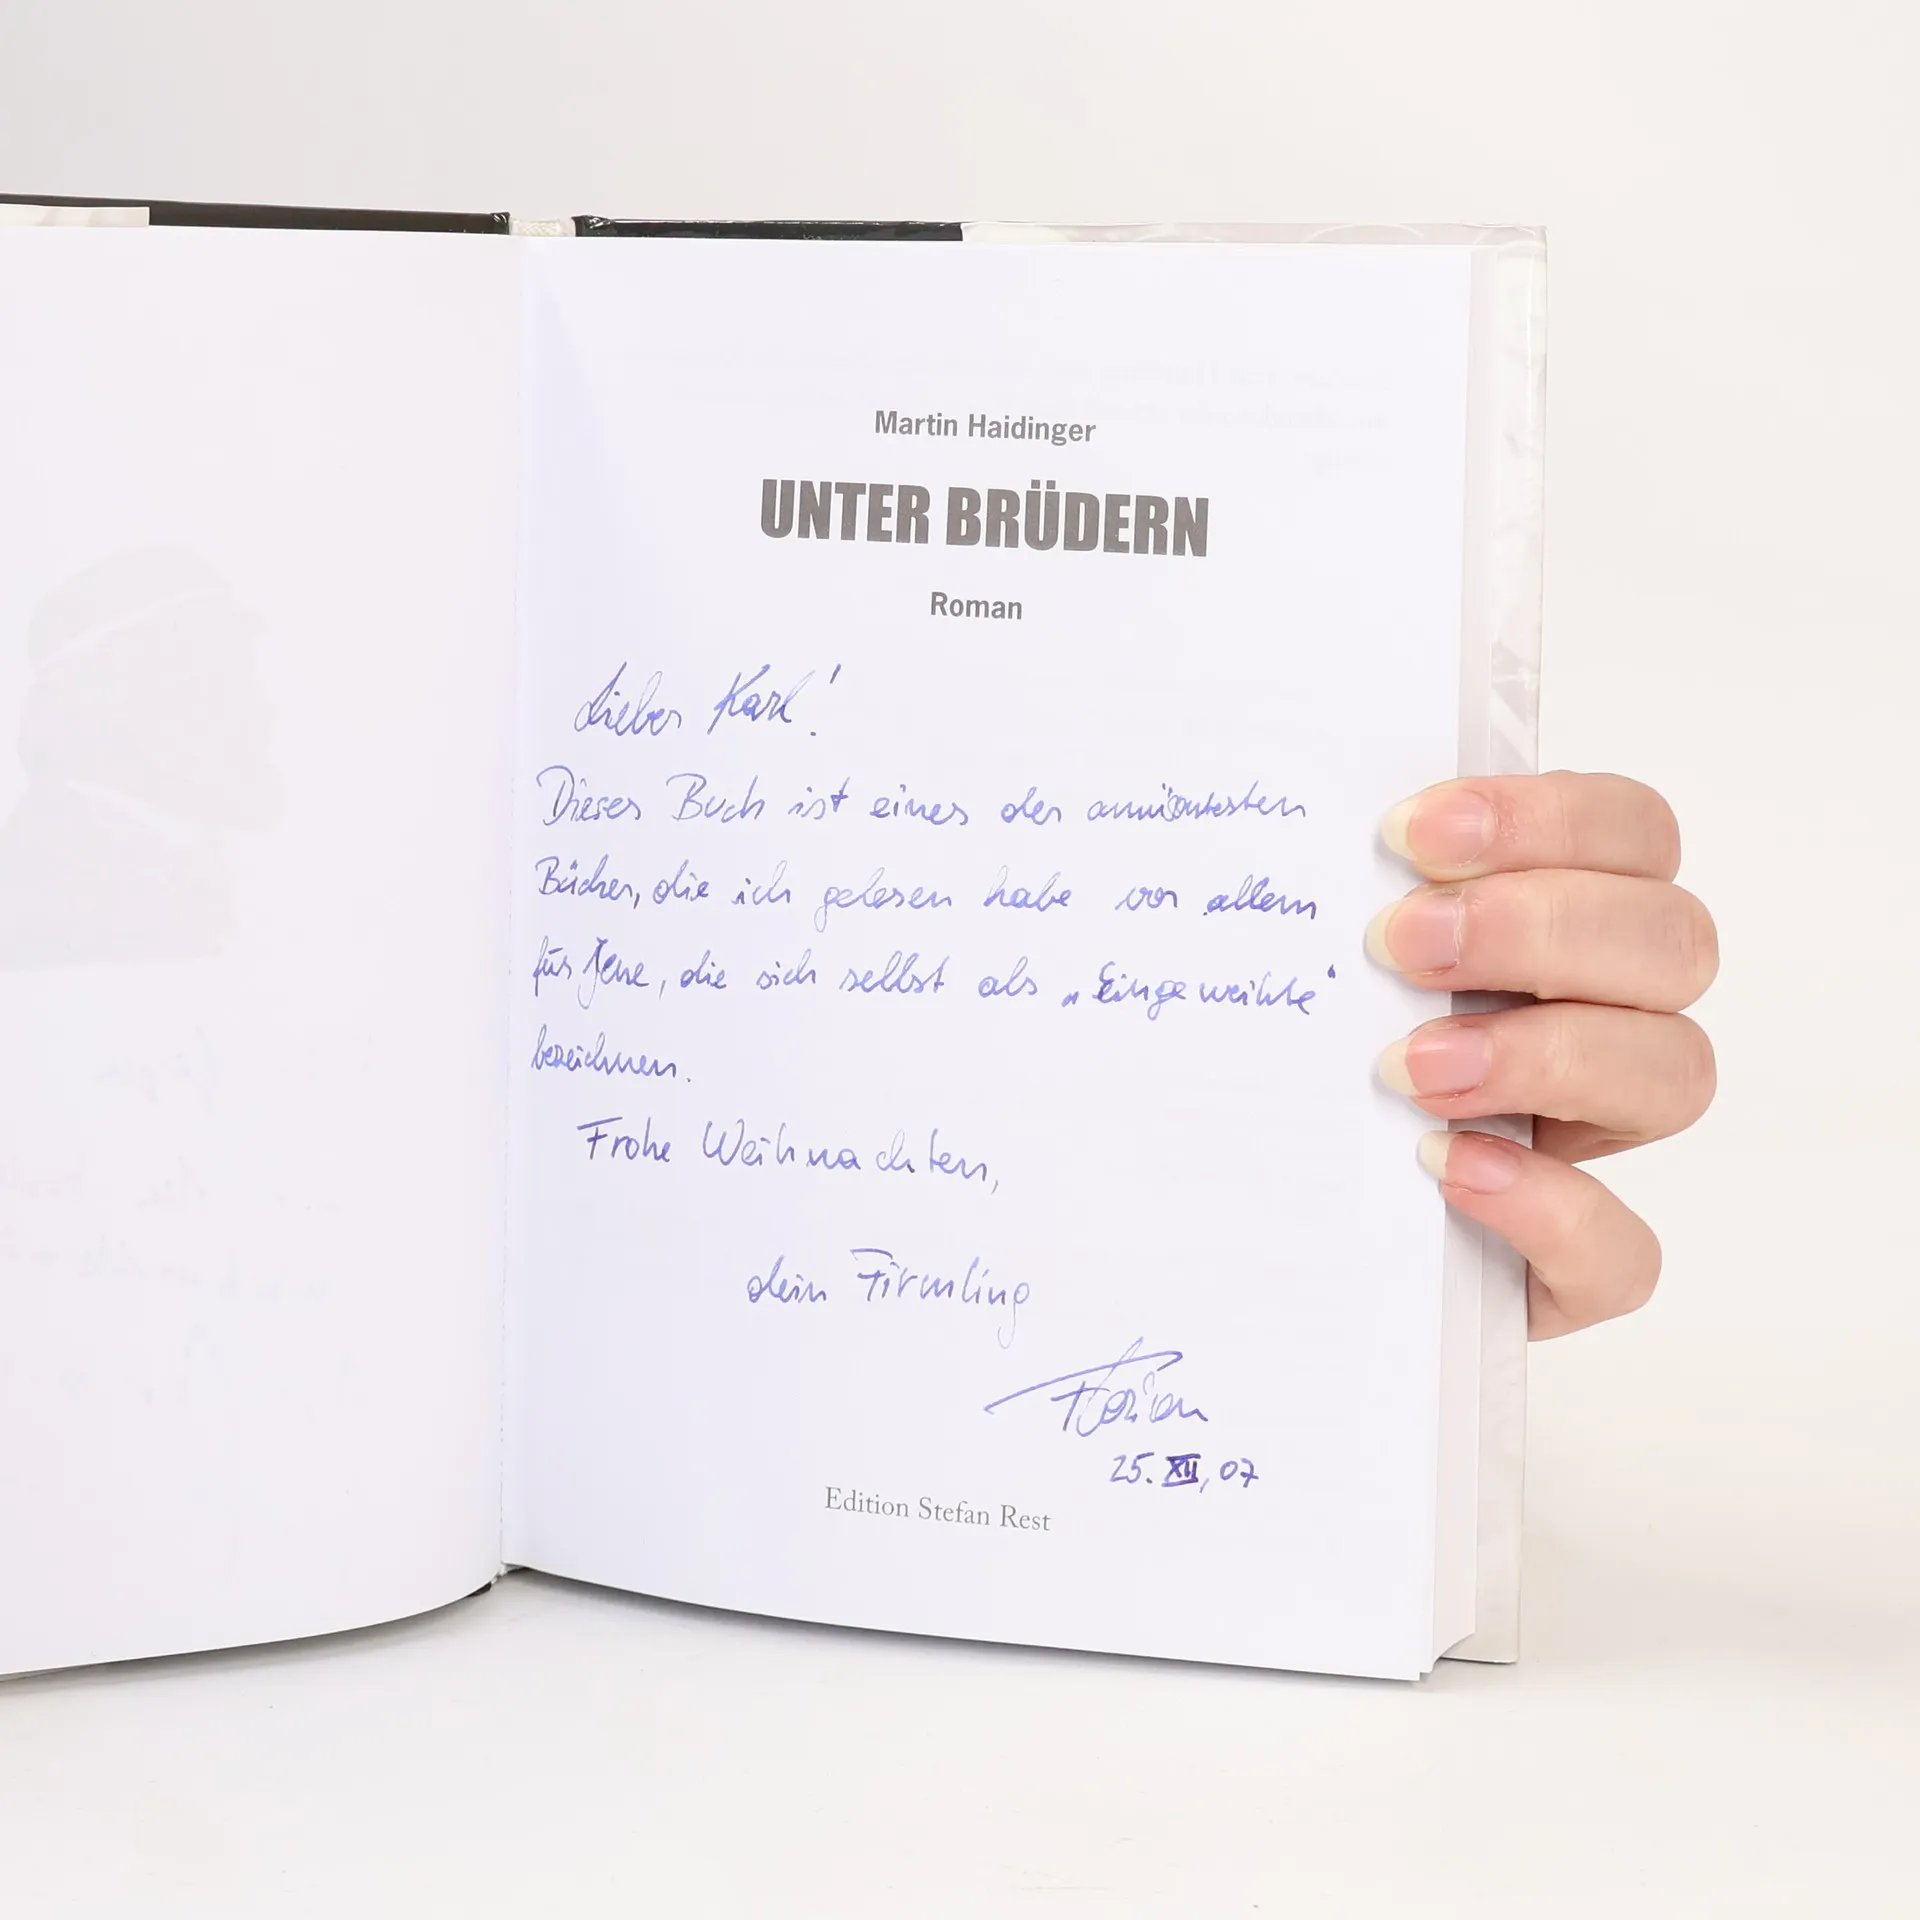 Martin Haidinger
UNTER BRÜDERN
Roman
Lieber Karl!
Dieses Buch ist eines der amüsantesten
Bücher, die ich gelesen habe vor allem
für Jene, die sich selbst als „Eingeweihte“
bezeichnen.
Frohe Weihnachten,
dein Firmling
Florian
25. XII, 07
Edition Stefan Rest